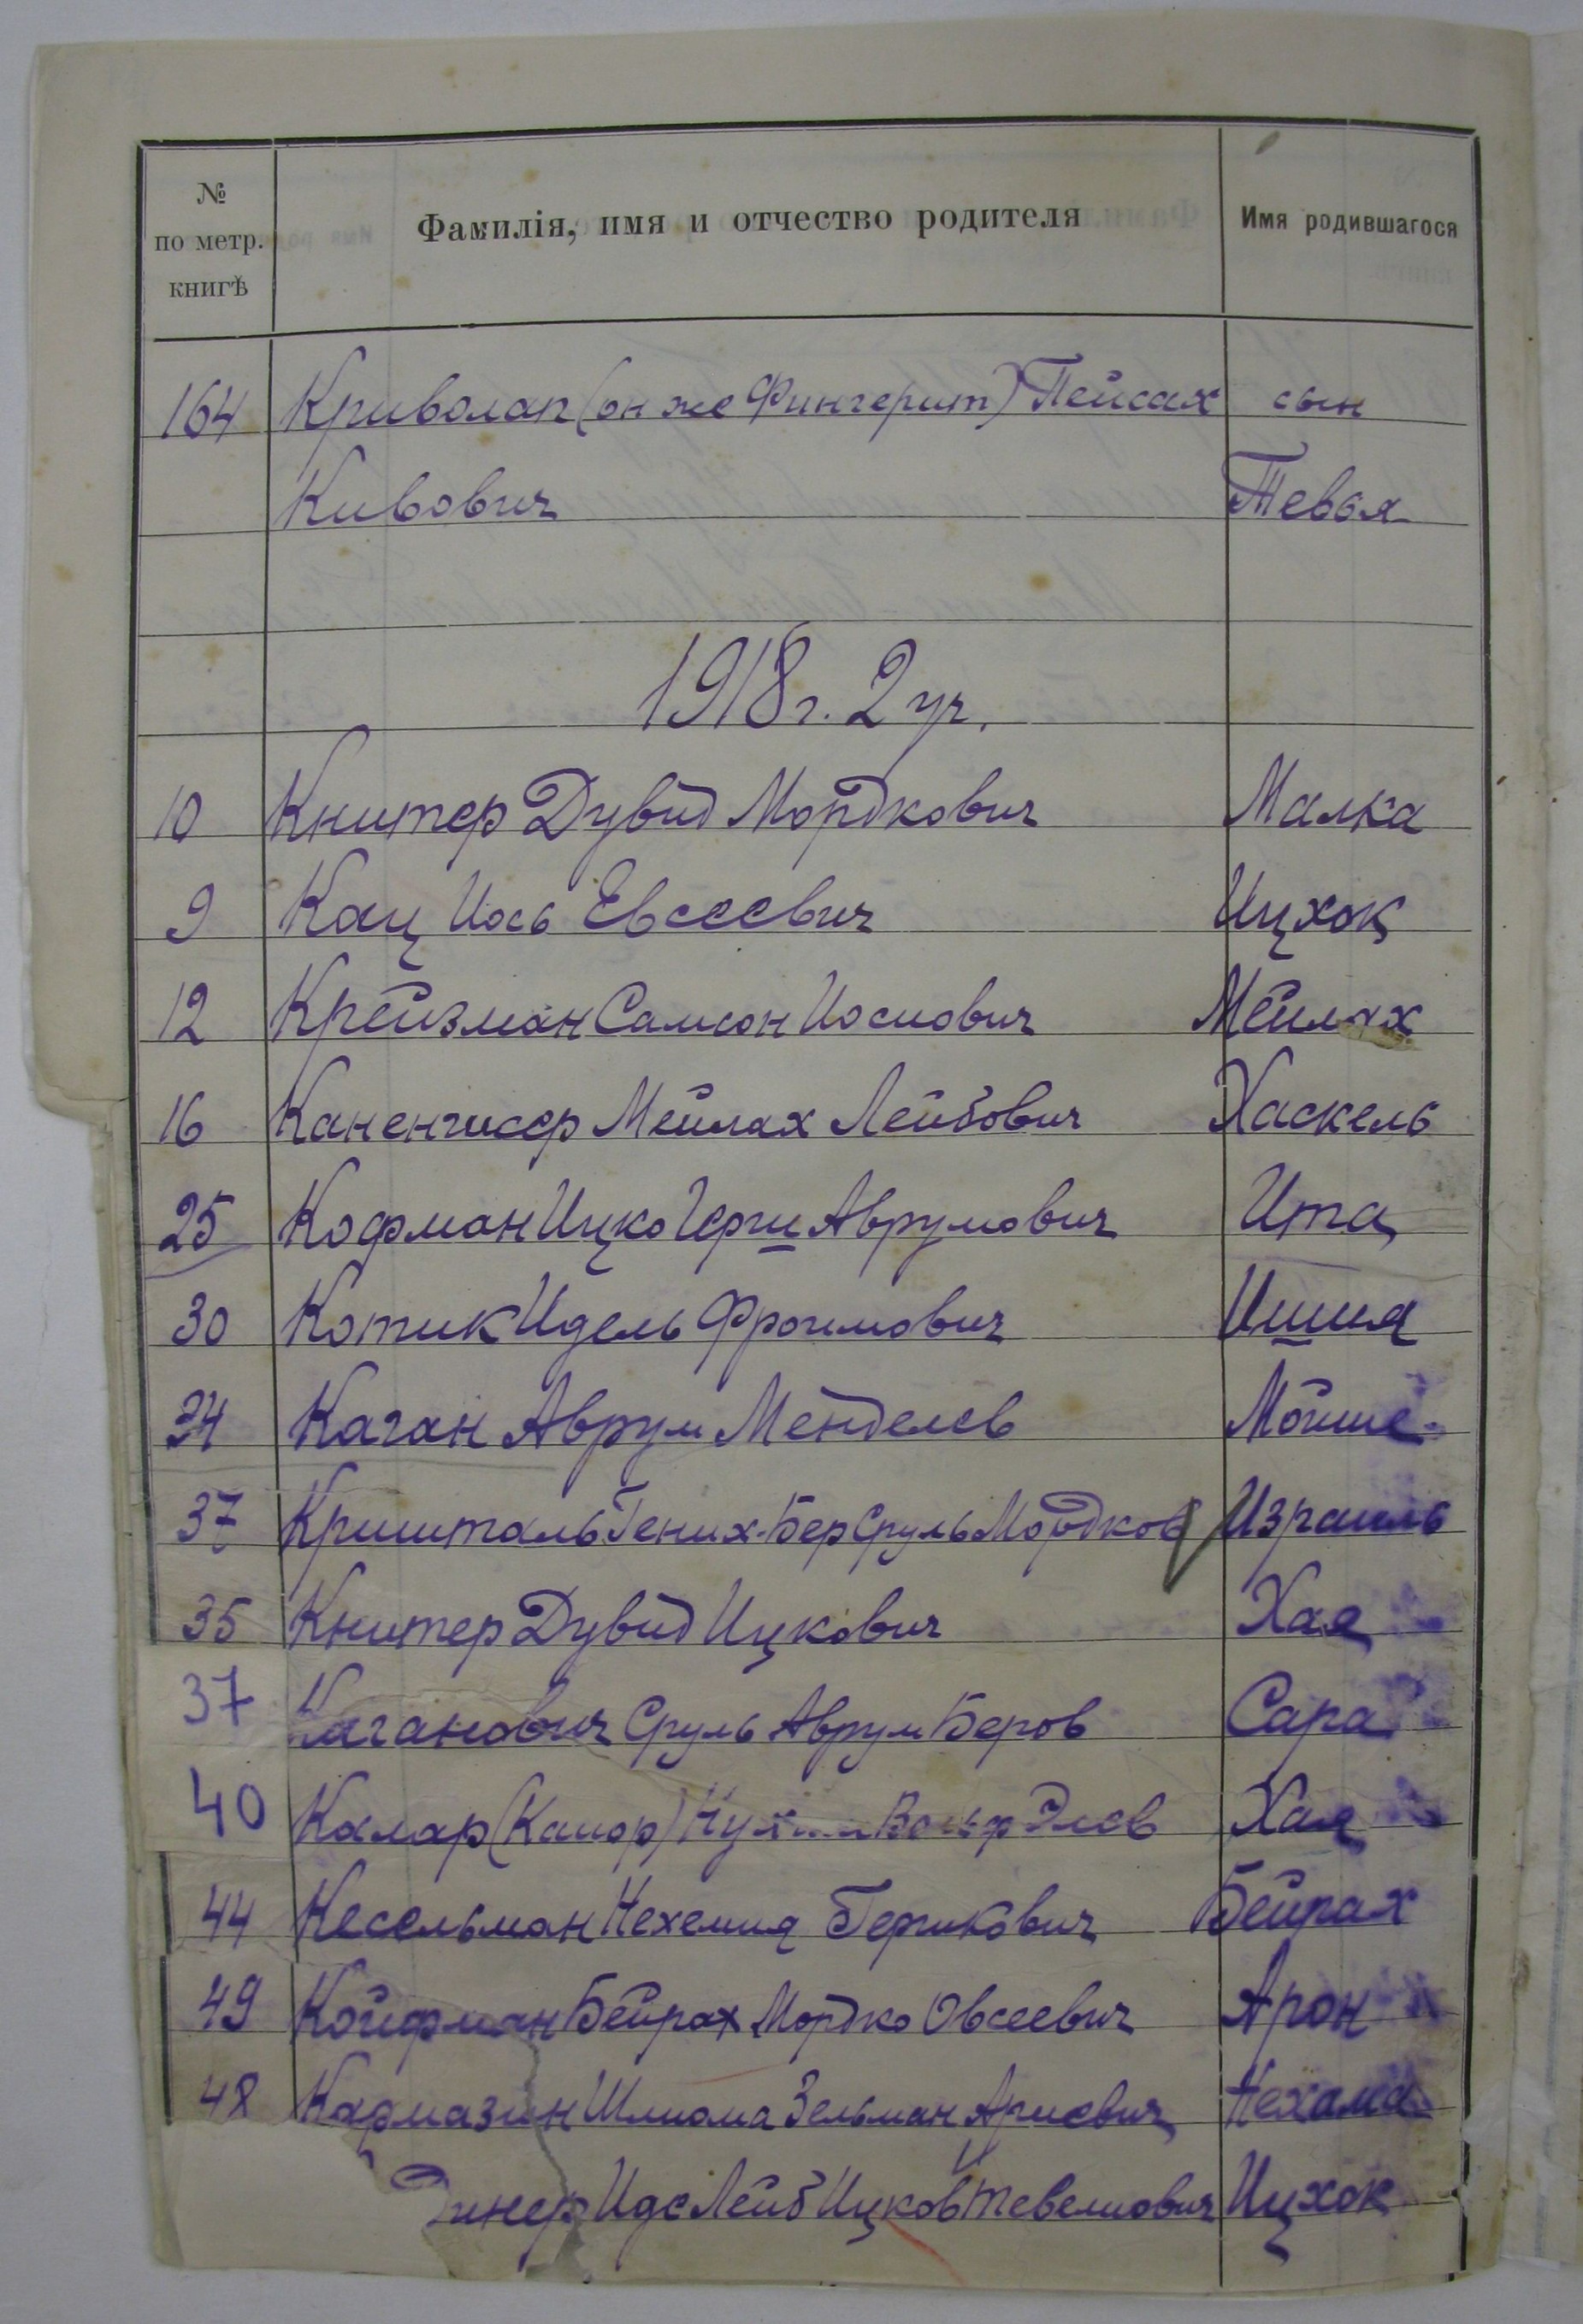 № по метр. книгѣ Фамилія, имя и отчество родителя Имя родившагося
164 Криволап (он же Фингерит) Пейсах сын
Кивович Тевья
1918 г. 2 уч.
10 Книтер Дувид Мордкович Малка
9 Кац Иось Евсеевич Ицхок
12 Крейзман Самсон Иосиович Мейлах
16 Каненгисер Мейлах Лейбович Хаскель
25 Кофман Ицко Герш Аврумович Ита
30 Котик Идель Фроимович Ишия
34 Каган Аврум Менделев Мойше
37 Кришталь Гених-Бер Сруль Мордков Израиль
35 Книтер Дувид Ицкович Хая
37 Каганович Сруль Аврум Беров Сара
40 Калар (Капор) Вольф Элев Хая
44 Кесельман Нехемия Берикович Бейрах
49 Койфман Бейрах Мордко Овсеевич Арон
48 Кармазин Шлиома Зельман Ариевич Нехама
Иде Лейб Ицков Тевелиович Ицхок